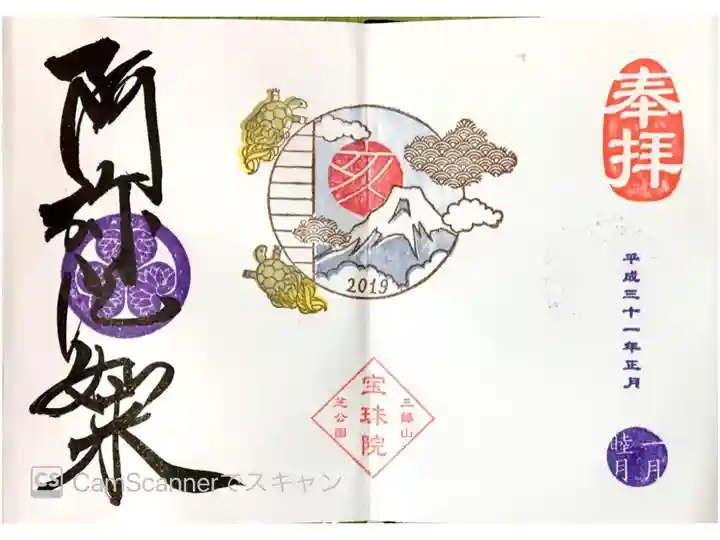 奉拝
平成三十一年正月
一月
睦月
亥
2019
三縁山
宝珠院
芝公園
阿弥陀如来
CS CamScannerでスキャン